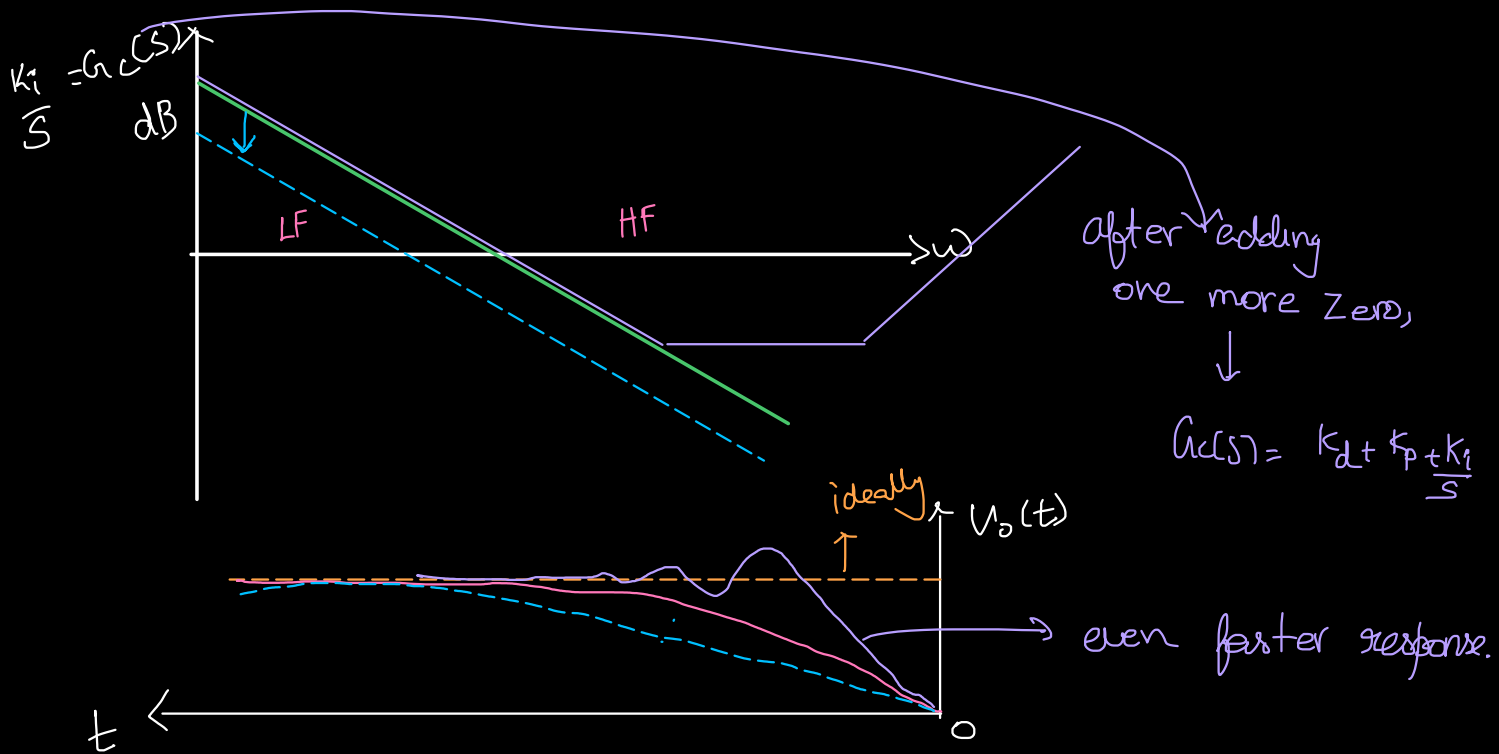 Ki/S = Gc(S)
dB
LF
HF
ω
after adding
one more zero,
Gc(S) = Kd + Kp + Ki/S
ideally
Vo(t)
even faster response.
t
0